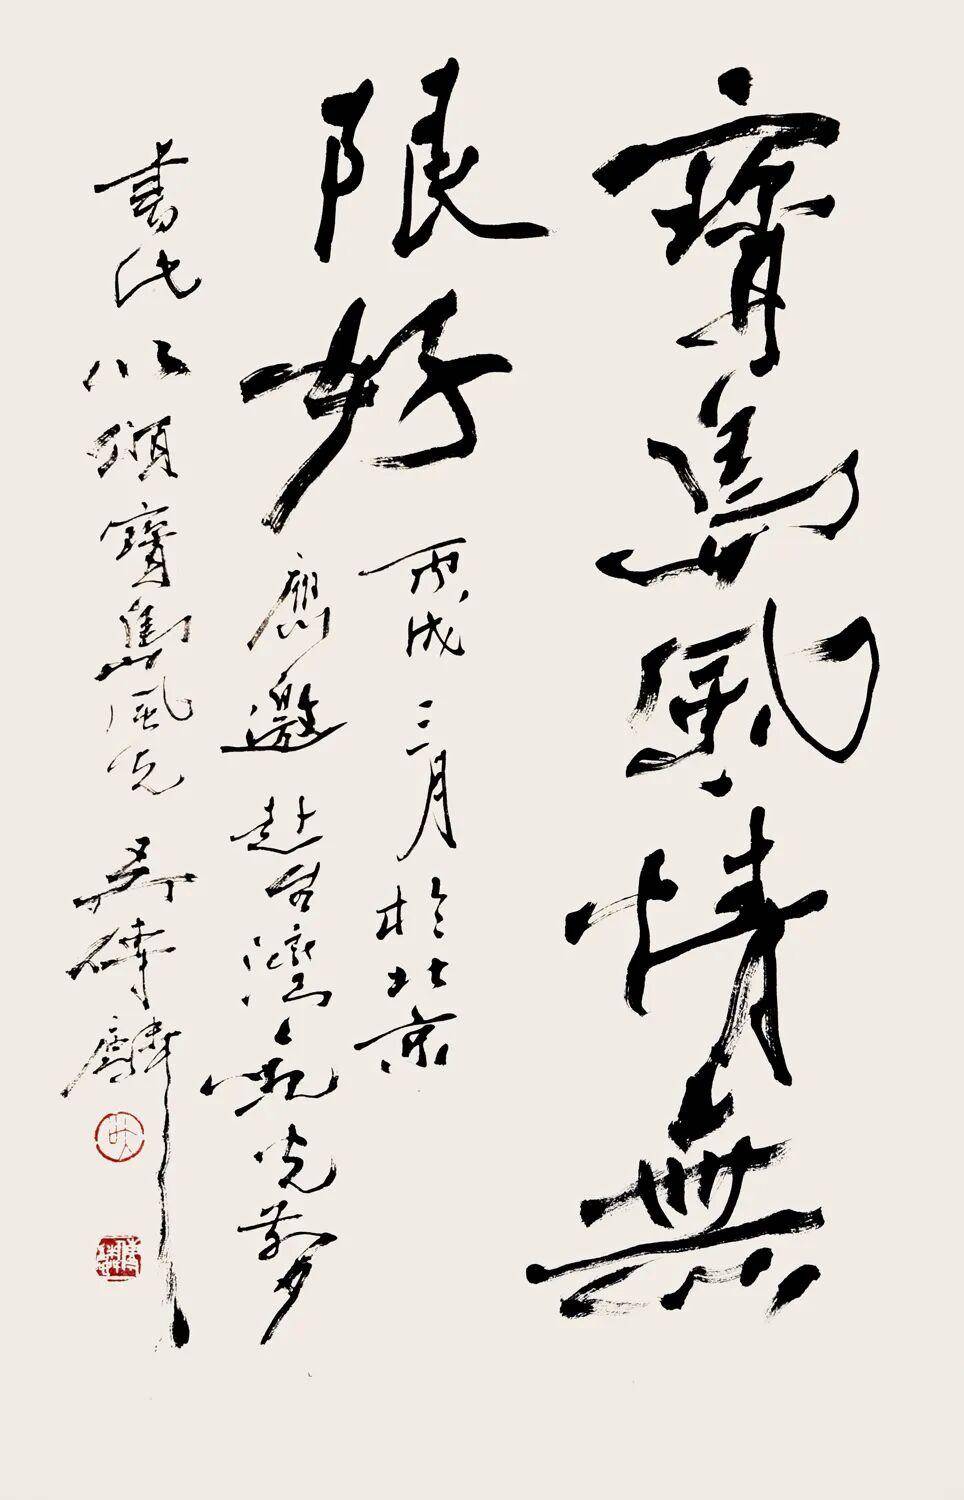 寶島風情無
限好
丙戌三月於北京
應邀赴台灣觀光前夕
書此以頌寶島風光 吳傳麟